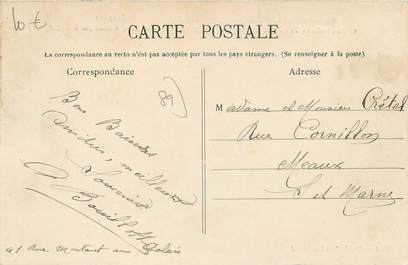 10 €
CARTE POSTALE
La correspondance au recto n'est pas acceptée par tous les pays étrangers. (Se renseigner à la poste)
Correspondance
Adresse
Bons Baisers
amitiés, meilleurs
Souvenirs
Madame et Monsieur Crétel
Rue Cornillon
Meaux
S et Marne
41 Rue